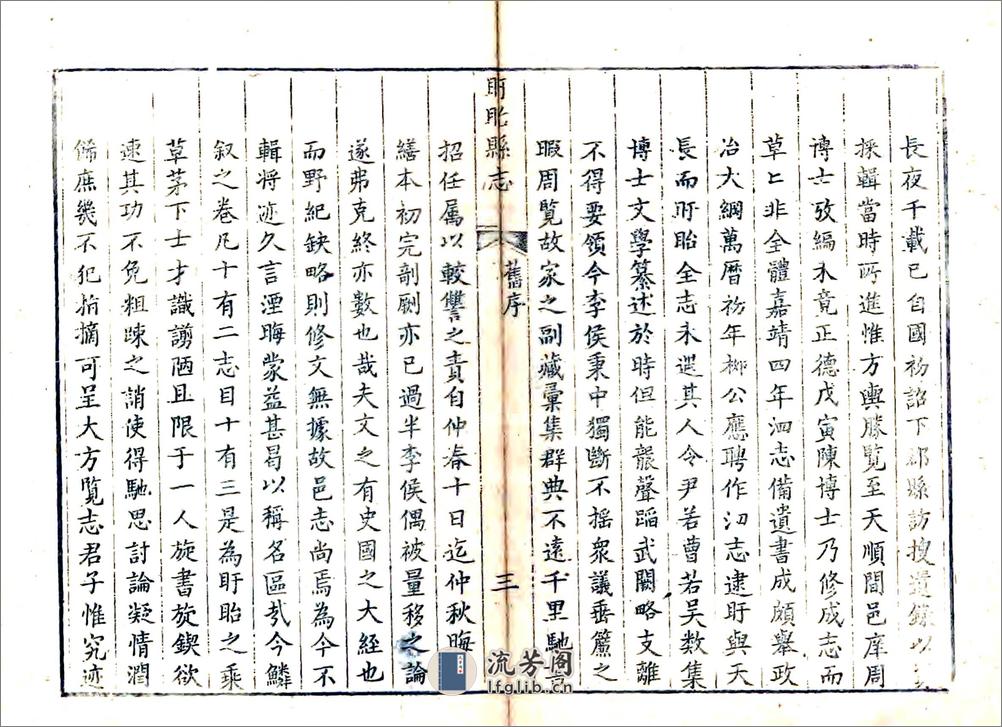 長夜千載已自國初詔下郡縣訪搜遺錄以
採輯當時所進惟方輿勝覽至天順間邑庠周
博士攷編未竟正德戊寅陳博士乃修成志而
草亡非全體嘉靖四年泗志備遺書成頗舉政
冶大綱萬曆初年栁公應聘作泗志逮盱與天
長而盱眙全志未遑其人令尹若曹若吳數集
博士文學纂述於時但能襲聲蹈武闕略支離
不得要領今李侯秉中獨斷不搖衆議垂簾之
暇周覽故家之副藏彙集群典不遠千里馳
盱眙縣志
舊序
三
招任属以較讐之責自仲春十日迄仲秋晦
繕本初完剞劂亦已過半李侯偶被量移之論
遂弗克終亦數也哉夫文之有史國之大經也
而野紀缺略則修文無據故邑志尚焉為今不
輯將迹久言湮晦蒙益甚曷以稱名區㢤今鱗
叙之卷凡十有二志目十有三是為盱眙之乘
草茅下士才識謭陋且限于一人旋書旋鍥欲
速其功不免粗踈之誚使得馳思討論凝情潤
餙庶幾不犯指摘可呈大方覽志君子惟究迹
流芳閣
lfglib.cn